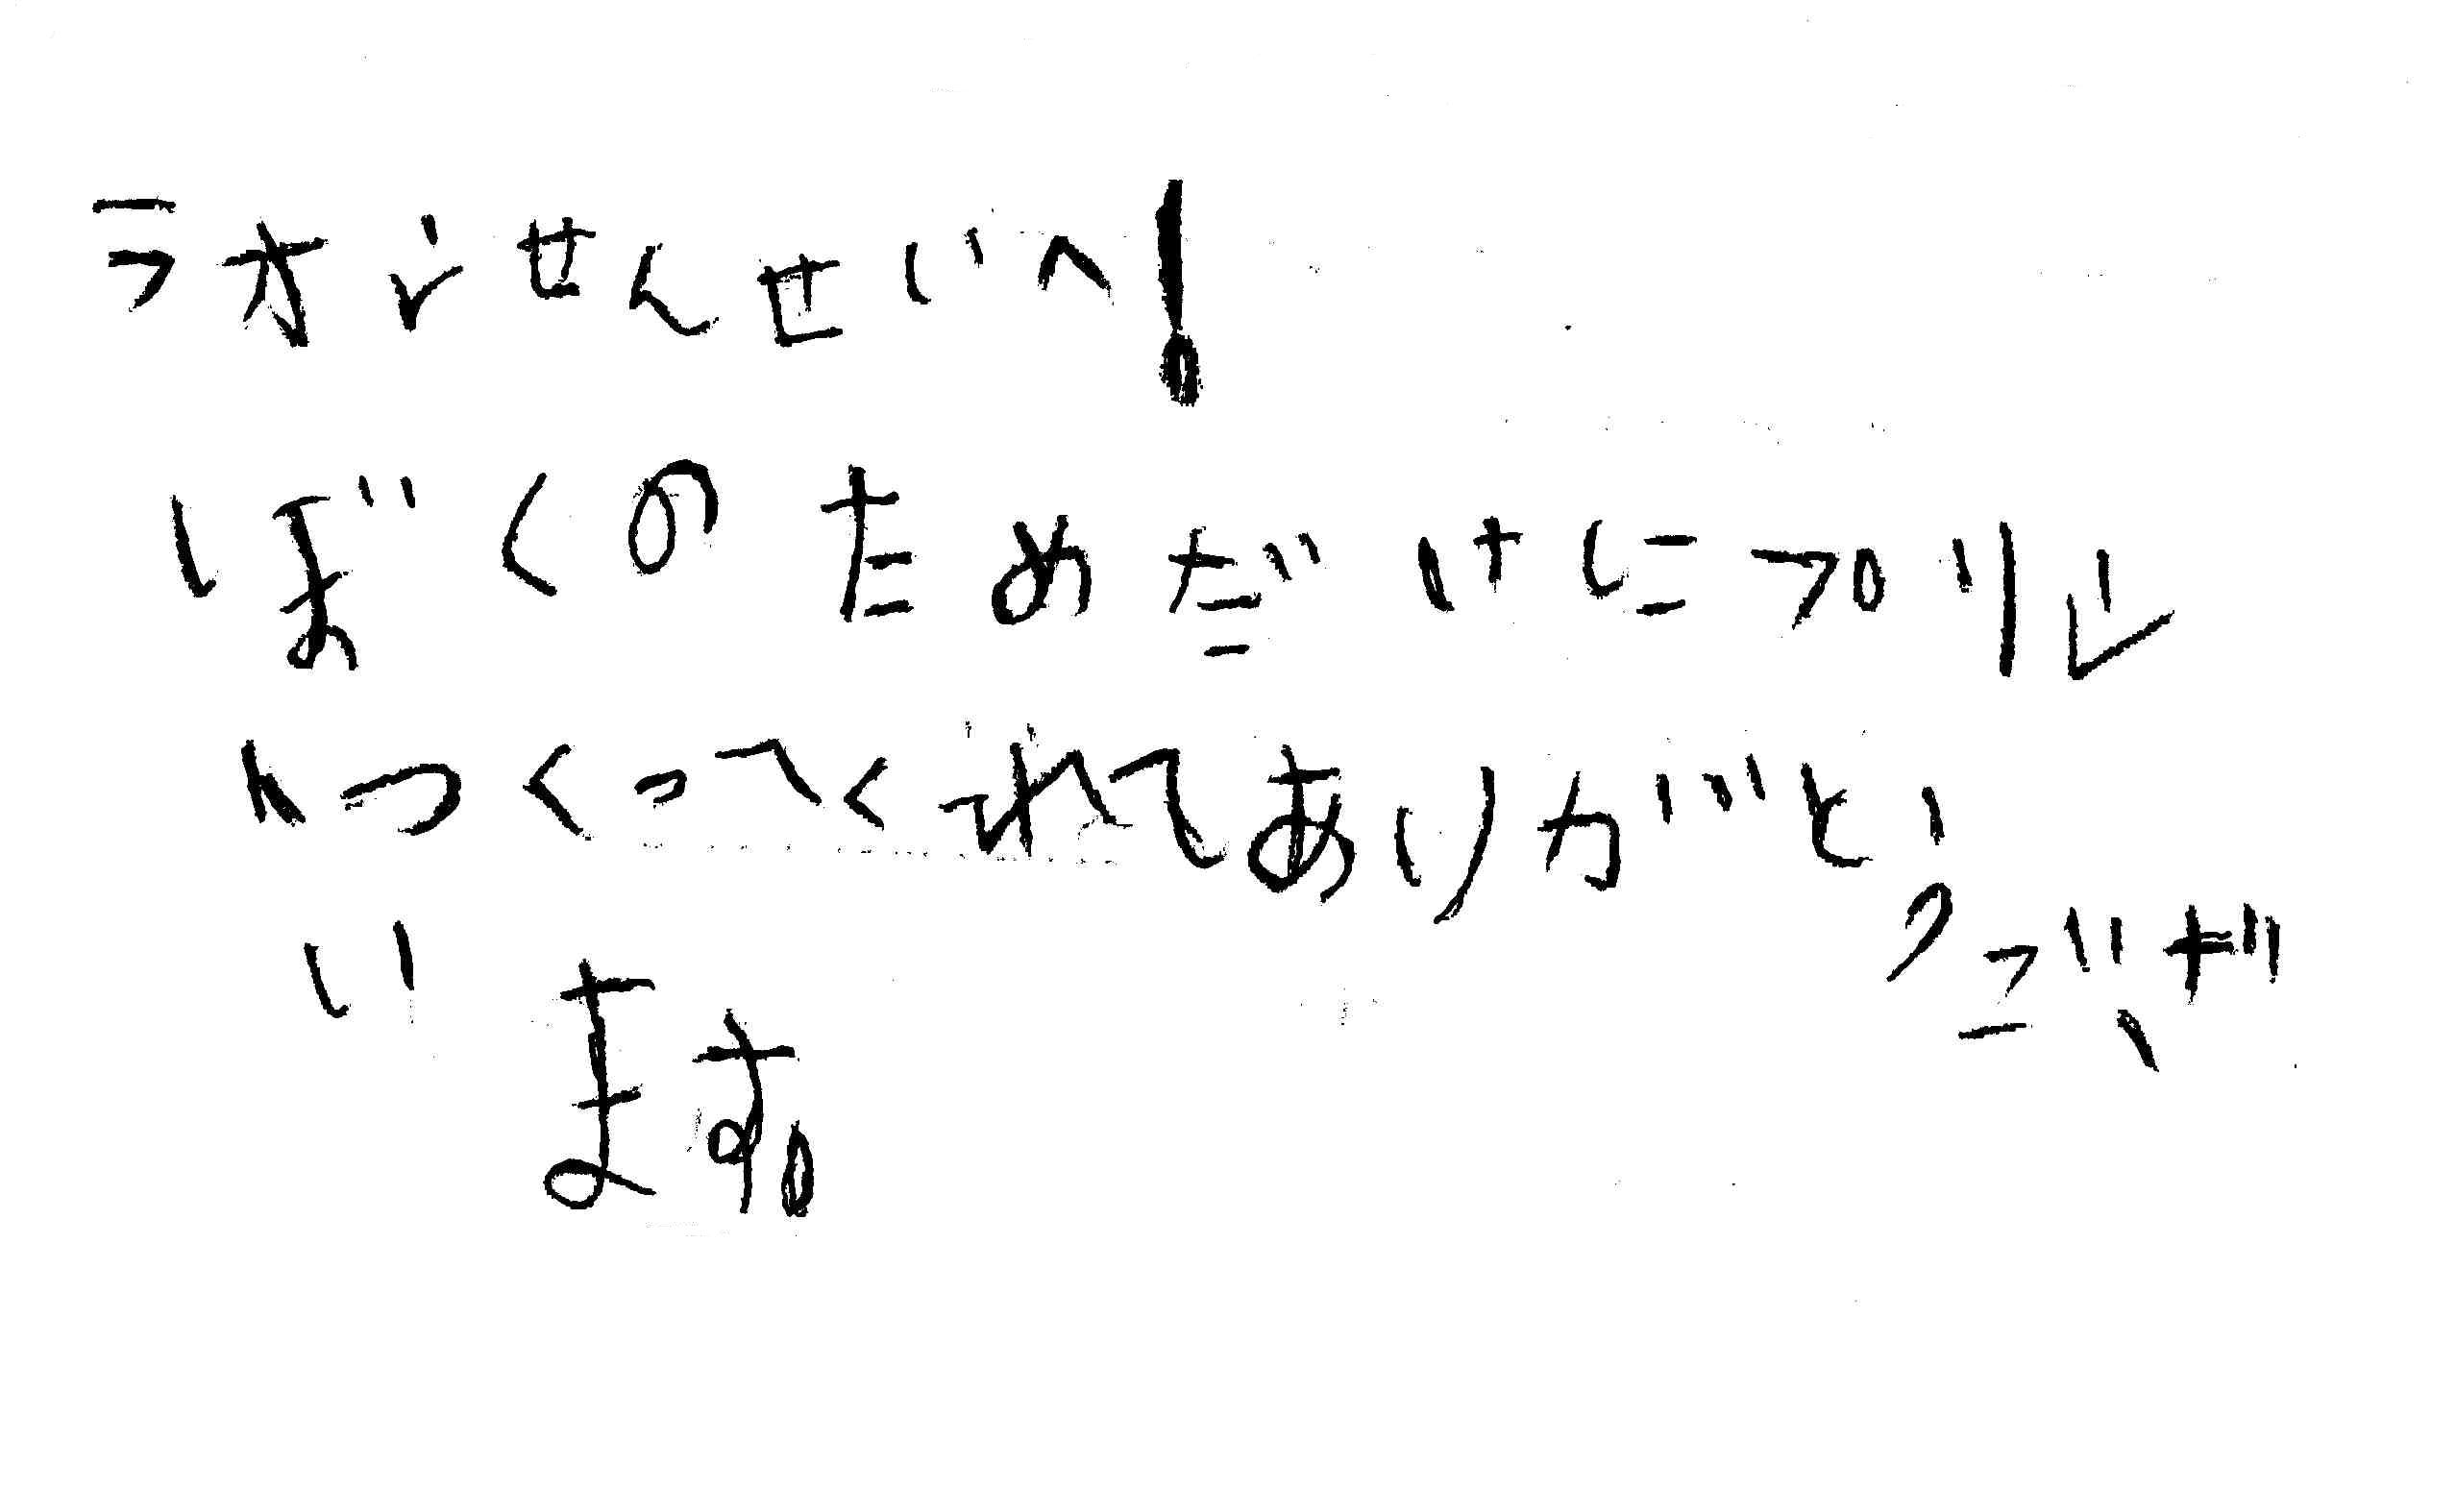 ラオンせんせいへ!
ぼくのためだけにプリン
トつくってくれてありがとうござ
います。